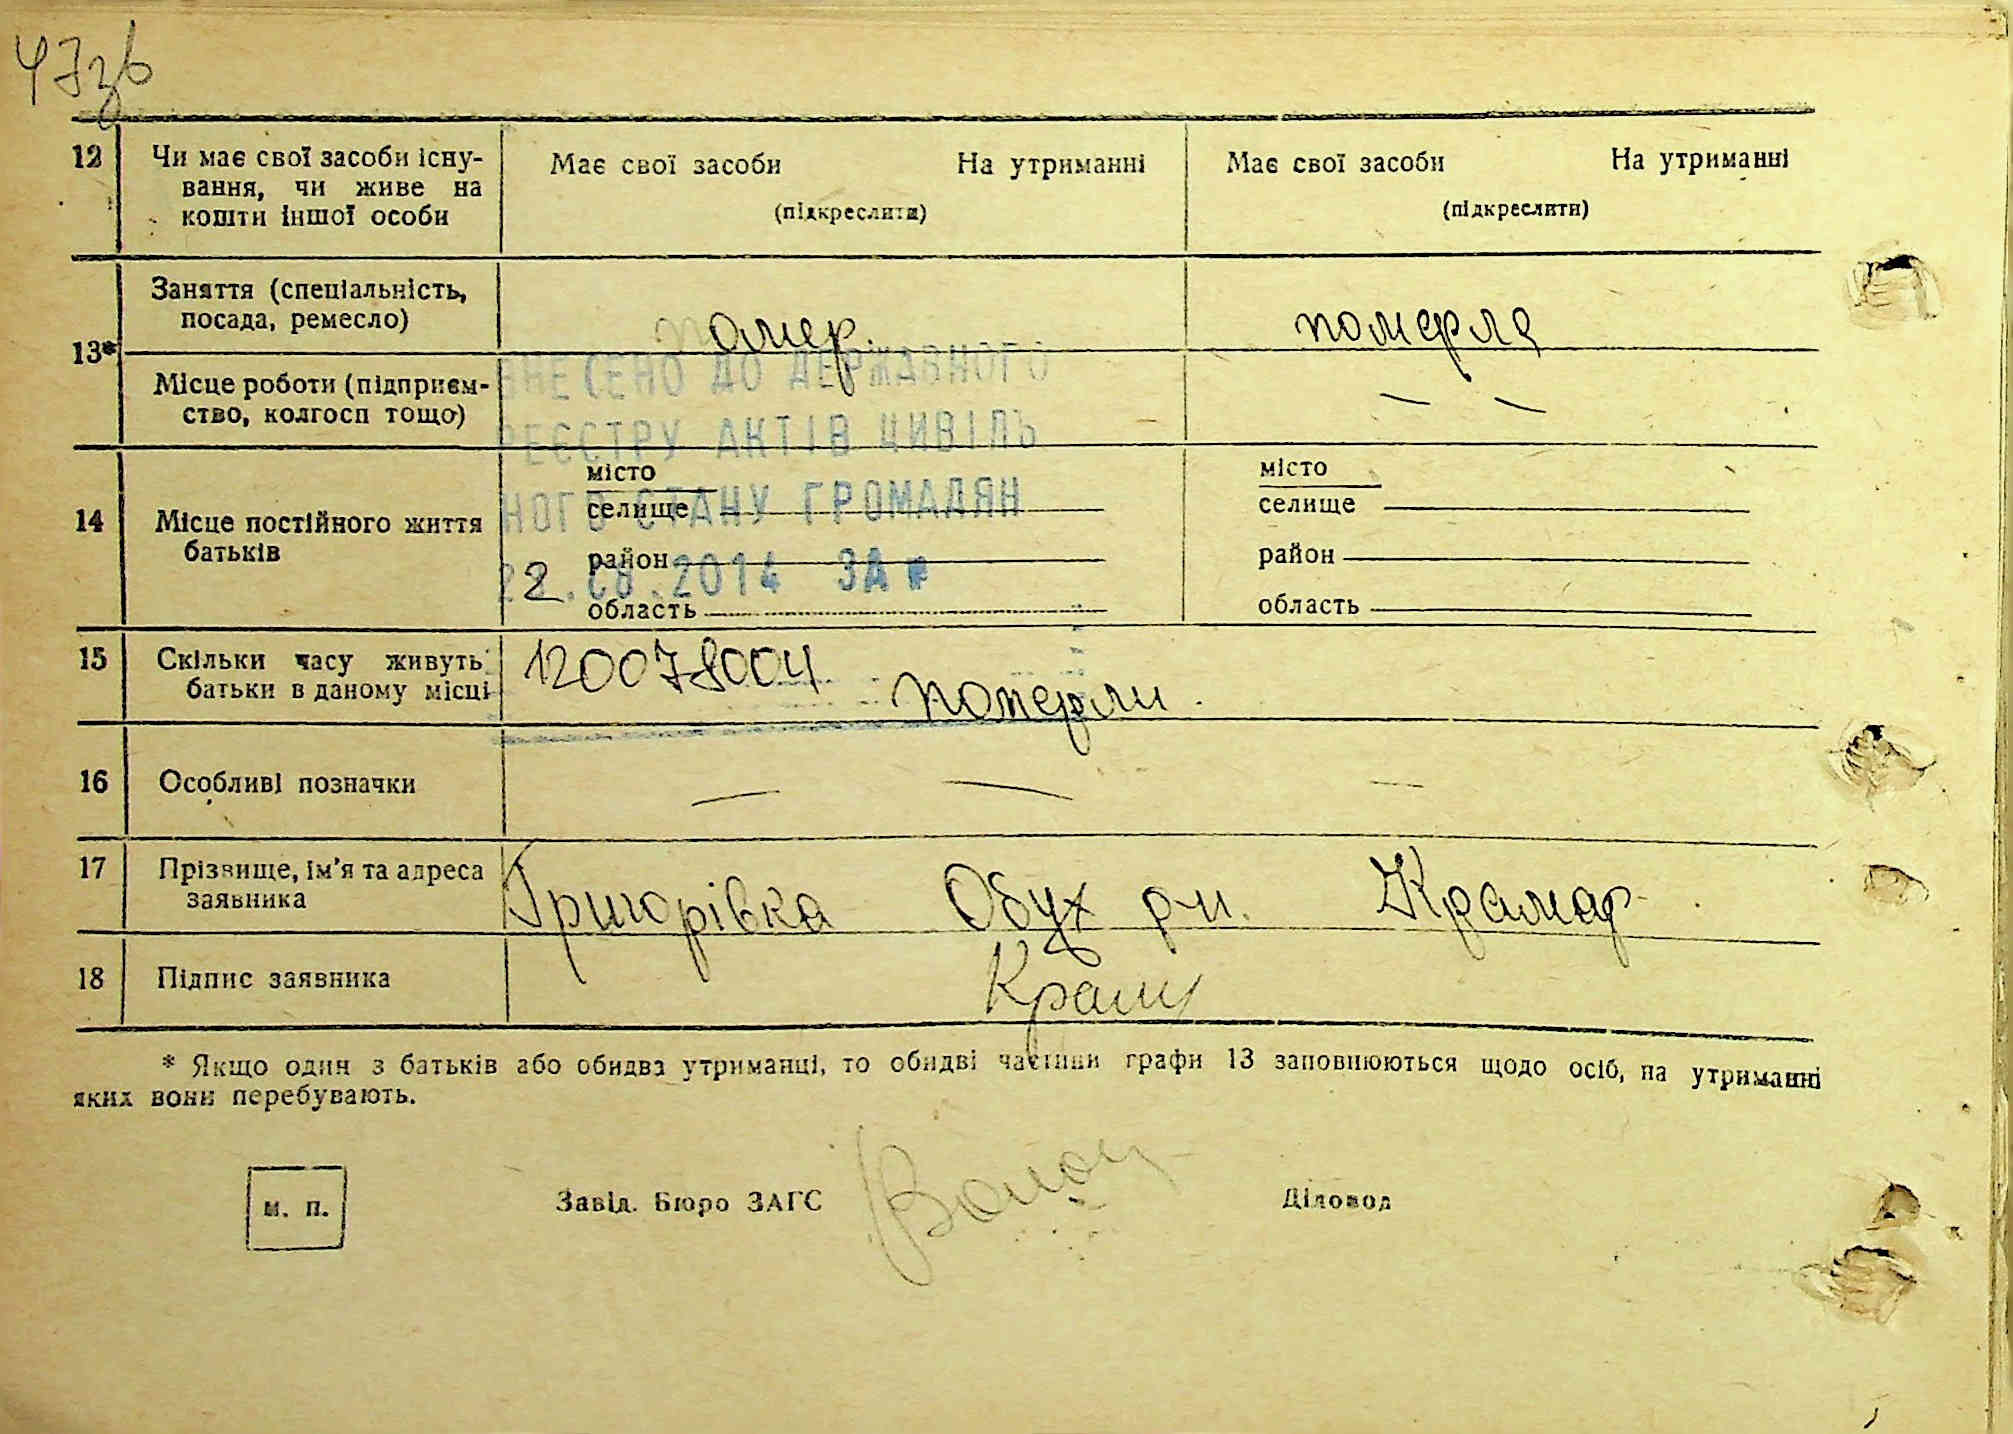 47зв
12 Чи має свої засоби існу- Має свої засоби На утриманні Має свої засоби На утриманні
вання, чи живе на (підкреслити) (підкреслити)
кошти іншої особи
Заняття (спеціальність,
посада, ремесло) помер. померла
13*
ВНЕСЕНО ДО ДЕРЖАВНОГО
Місце роботи (підприєм- — —
ство, колгосп тощо)
РЕЄСТРУ АКТІВ ЦИВІЛЬ
місто місто
НОГО СТАНУ ГРОМАДЯН
селище селище
14 Місце постійного життя
батьків
район район
22.08.2014 ЗА №
область область
15 Скільки часу живуть 120078004
батьки в даному місці померли.
16 Особливі позначки — — —
17 Прізвище, ім'я та адреса Григорівка Обух р-н. Крамар
заявника
18 Підпис заявника Крам
* Якщо один з батьків або обидва утриманці, то обидві частини графи 13 заповнюються щодо осіб, на утриманні
яких вони перебувають.
м. п. Завід. Бюро ЗАГС Діловод